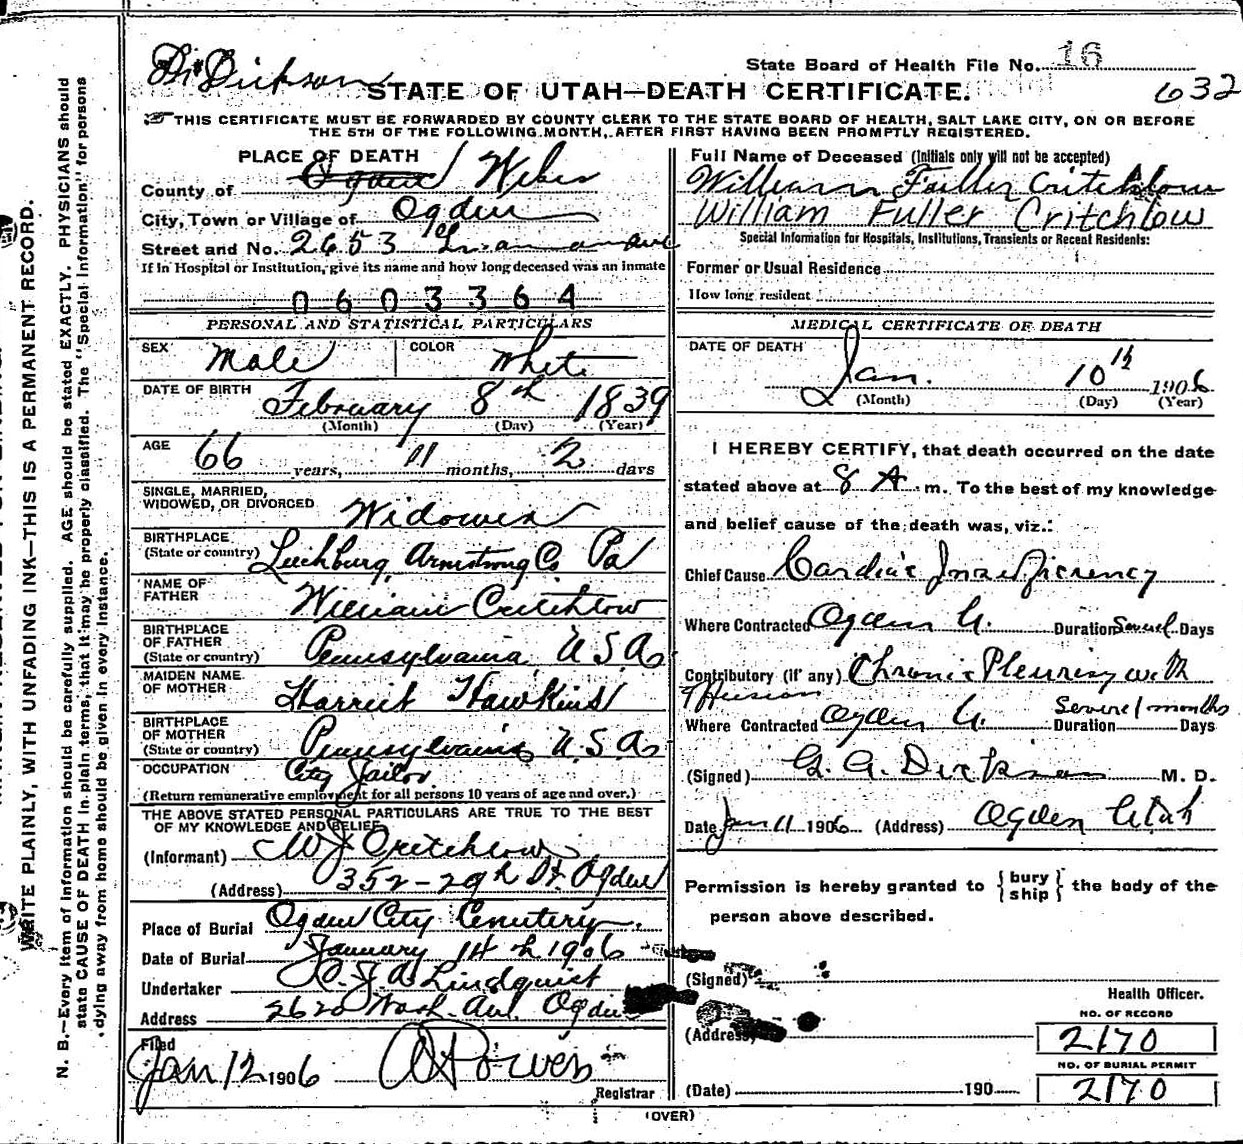 Dr Dickson
State Board of Health File No. 16
STATE OF UTAH—DEATH CERTIFICATE.
632
THIS CERTIFICATE MUST BE FORWARDED BY COUNTY CLERK TO THE STATE BOARD OF HEALTH, SALT LAKE CITY, ON OR BEFORE
THE 5TH OF THE FOLLOWING MONTH, AFTER FIRST HAVING BEEN PROMPTLY REGISTERED.
PLACE OF DEATH
County of Ogden Weber
City, Town or Village of Ogden
Street and No. 2653 Ave
If in Hospital or Institution, give its name and how long deceased was an inmate
0603364
Full Name of Deceased (Initials only will not be accepted)
William Fuller Critchlow
William Fuller Critchlow
Special Information for Hospitals, Institutions, Transients or Recent Residents:
Former or Usual Residence
How long resident
PERSONAL AND STATISTICAL PARTICULARS
SEX Male COLOR White
DATE OF BIRTH February 8th 1839
(Month) (Day) (Year)
AGE 66 years, 11 months, 2 days
SINGLE, MARRIED,
WIDOWED, OR DIVORCED Widower
BIRTHPLACE
(State or country) Leechburg, Armstrong Co. Pa
NAME OF
FATHER William Critchlow
BIRTHPLACE
OF FATHER
(State or country) Pennsylvania U.S.A.
MAIDEN NAME
OF MOTHER Harriet Hawkins
BIRTHPLACE
OF MOTHER
(State or country) Pennsylvania U.S.A.
OCCUPATION City Jailor
(Return remunerative employment for all persons 10 years of age and over.)
THE ABOVE STATED PERSONAL PARTICULARS ARE TRUE TO THE BEST
OF MY KNOWLEDGE AND BELIEF
(Informant) W J Critchlow
(Address) 352-29th St. Ogden
Place of Burial Ogden City Cemetery.
Date of Burial January 14th 1906
Undertaker Lindquist
Address 2620 Wash. Ave. Ogden
Filed
Jan 12 1906
Registrar
MEDICAL CERTIFICATE OF DEATH
DATE OF DEATH
Jan. 10th 1906
(Month) (Day) (Year)
I HEREBY CERTIFY, that death occurred on the date
stated above at 8 A m. To the best of my knowledge
and belief cause of the death was, viz.:
Chief Cause Cardiac Insufficiency
Where Contracted Ogden U. Duration Several Days
Contributory (if any) Chronic Pleurisy with
effusion
Where Contracted Ogden U. Duration Several months Days
(Signed) Dickson M. D.
Date Jan 11 1906 (Address) Ogden Utah
Permission is hereby granted to { bury
ship } the body of the
person above described.
(Signed)
Health Officer.
(Address)
NO. OF RECORD
2170
NO. OF BURIAL PERMIT
2170
(Date) 190
(OVER)
WRITE PLAINLY, WITH UNFADING INK—THIS IS A PERMANENT RECORD.
N. B.—Every item of information should be carefully supplied. AGE should be stated EXACTLY. PHYSICIANS should
state CAUSE OF DEATH in plain terms, that it may be properly classified. The "Special Information" for persons
dying away from home should be given in every instance.